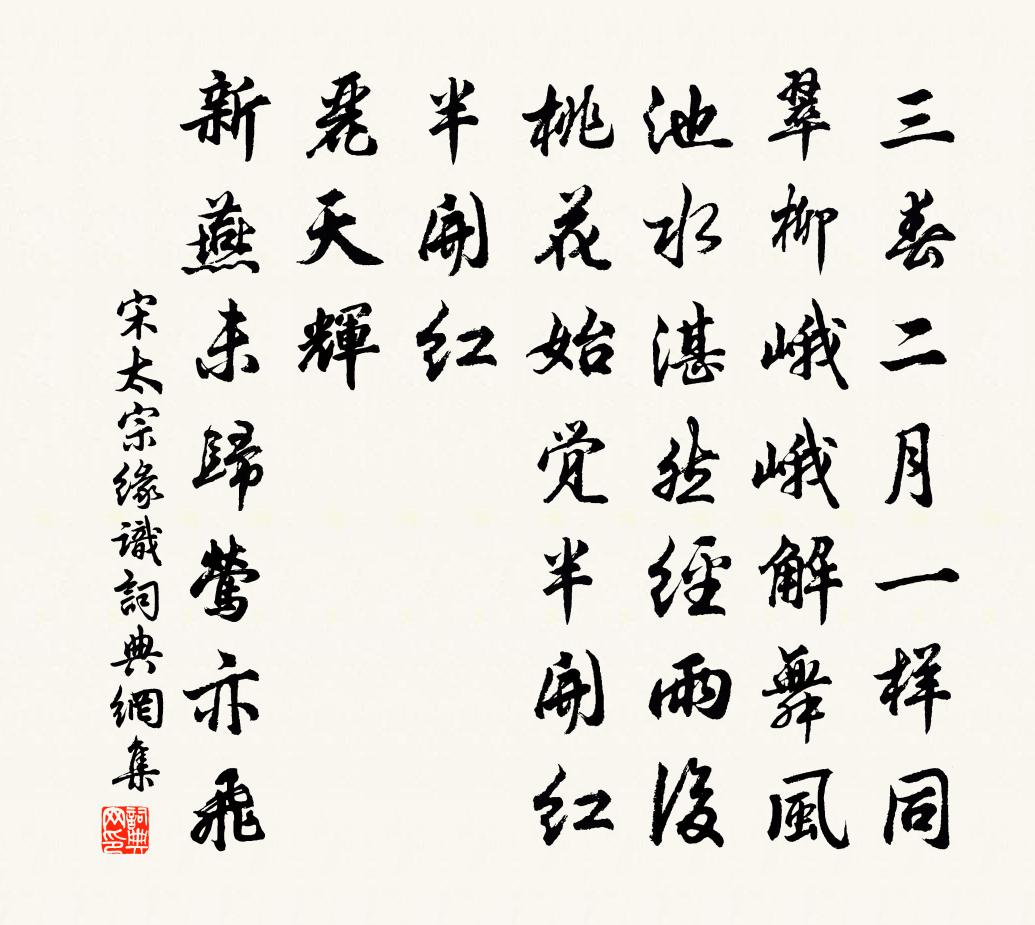 三春二月一样同
翠柳峨峨解舞風
池水湛然經雨後
桃花始觉半開紅
半開紅
麗天輝
新燕未歸鶯亦飛
宋太宗緣識詞典網集
詞典
网印